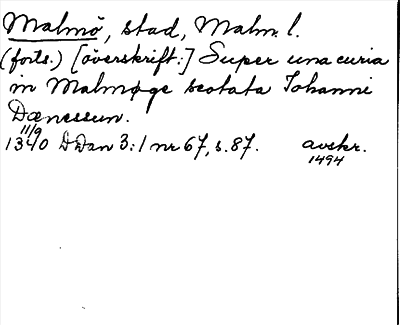 Malmö, stad, Malm. l.
(forts.) [överskrift:] Super una curia
in Malmøge scotata Iohanni
Dænessun.
11/9
1340 DDan 3:1 nr 67, s. 87. avskr.
1494